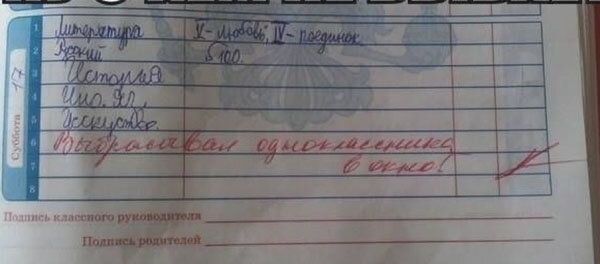 1 Литература V-любовь, IV-поединок
2 Русский §100.
3 История
4 Ино. яз.
5 Искусство.
6 Выбрасывал одноклассника
7 в окно!
8
Суббота 17
Подпись классного руководителя
Подпись родителей